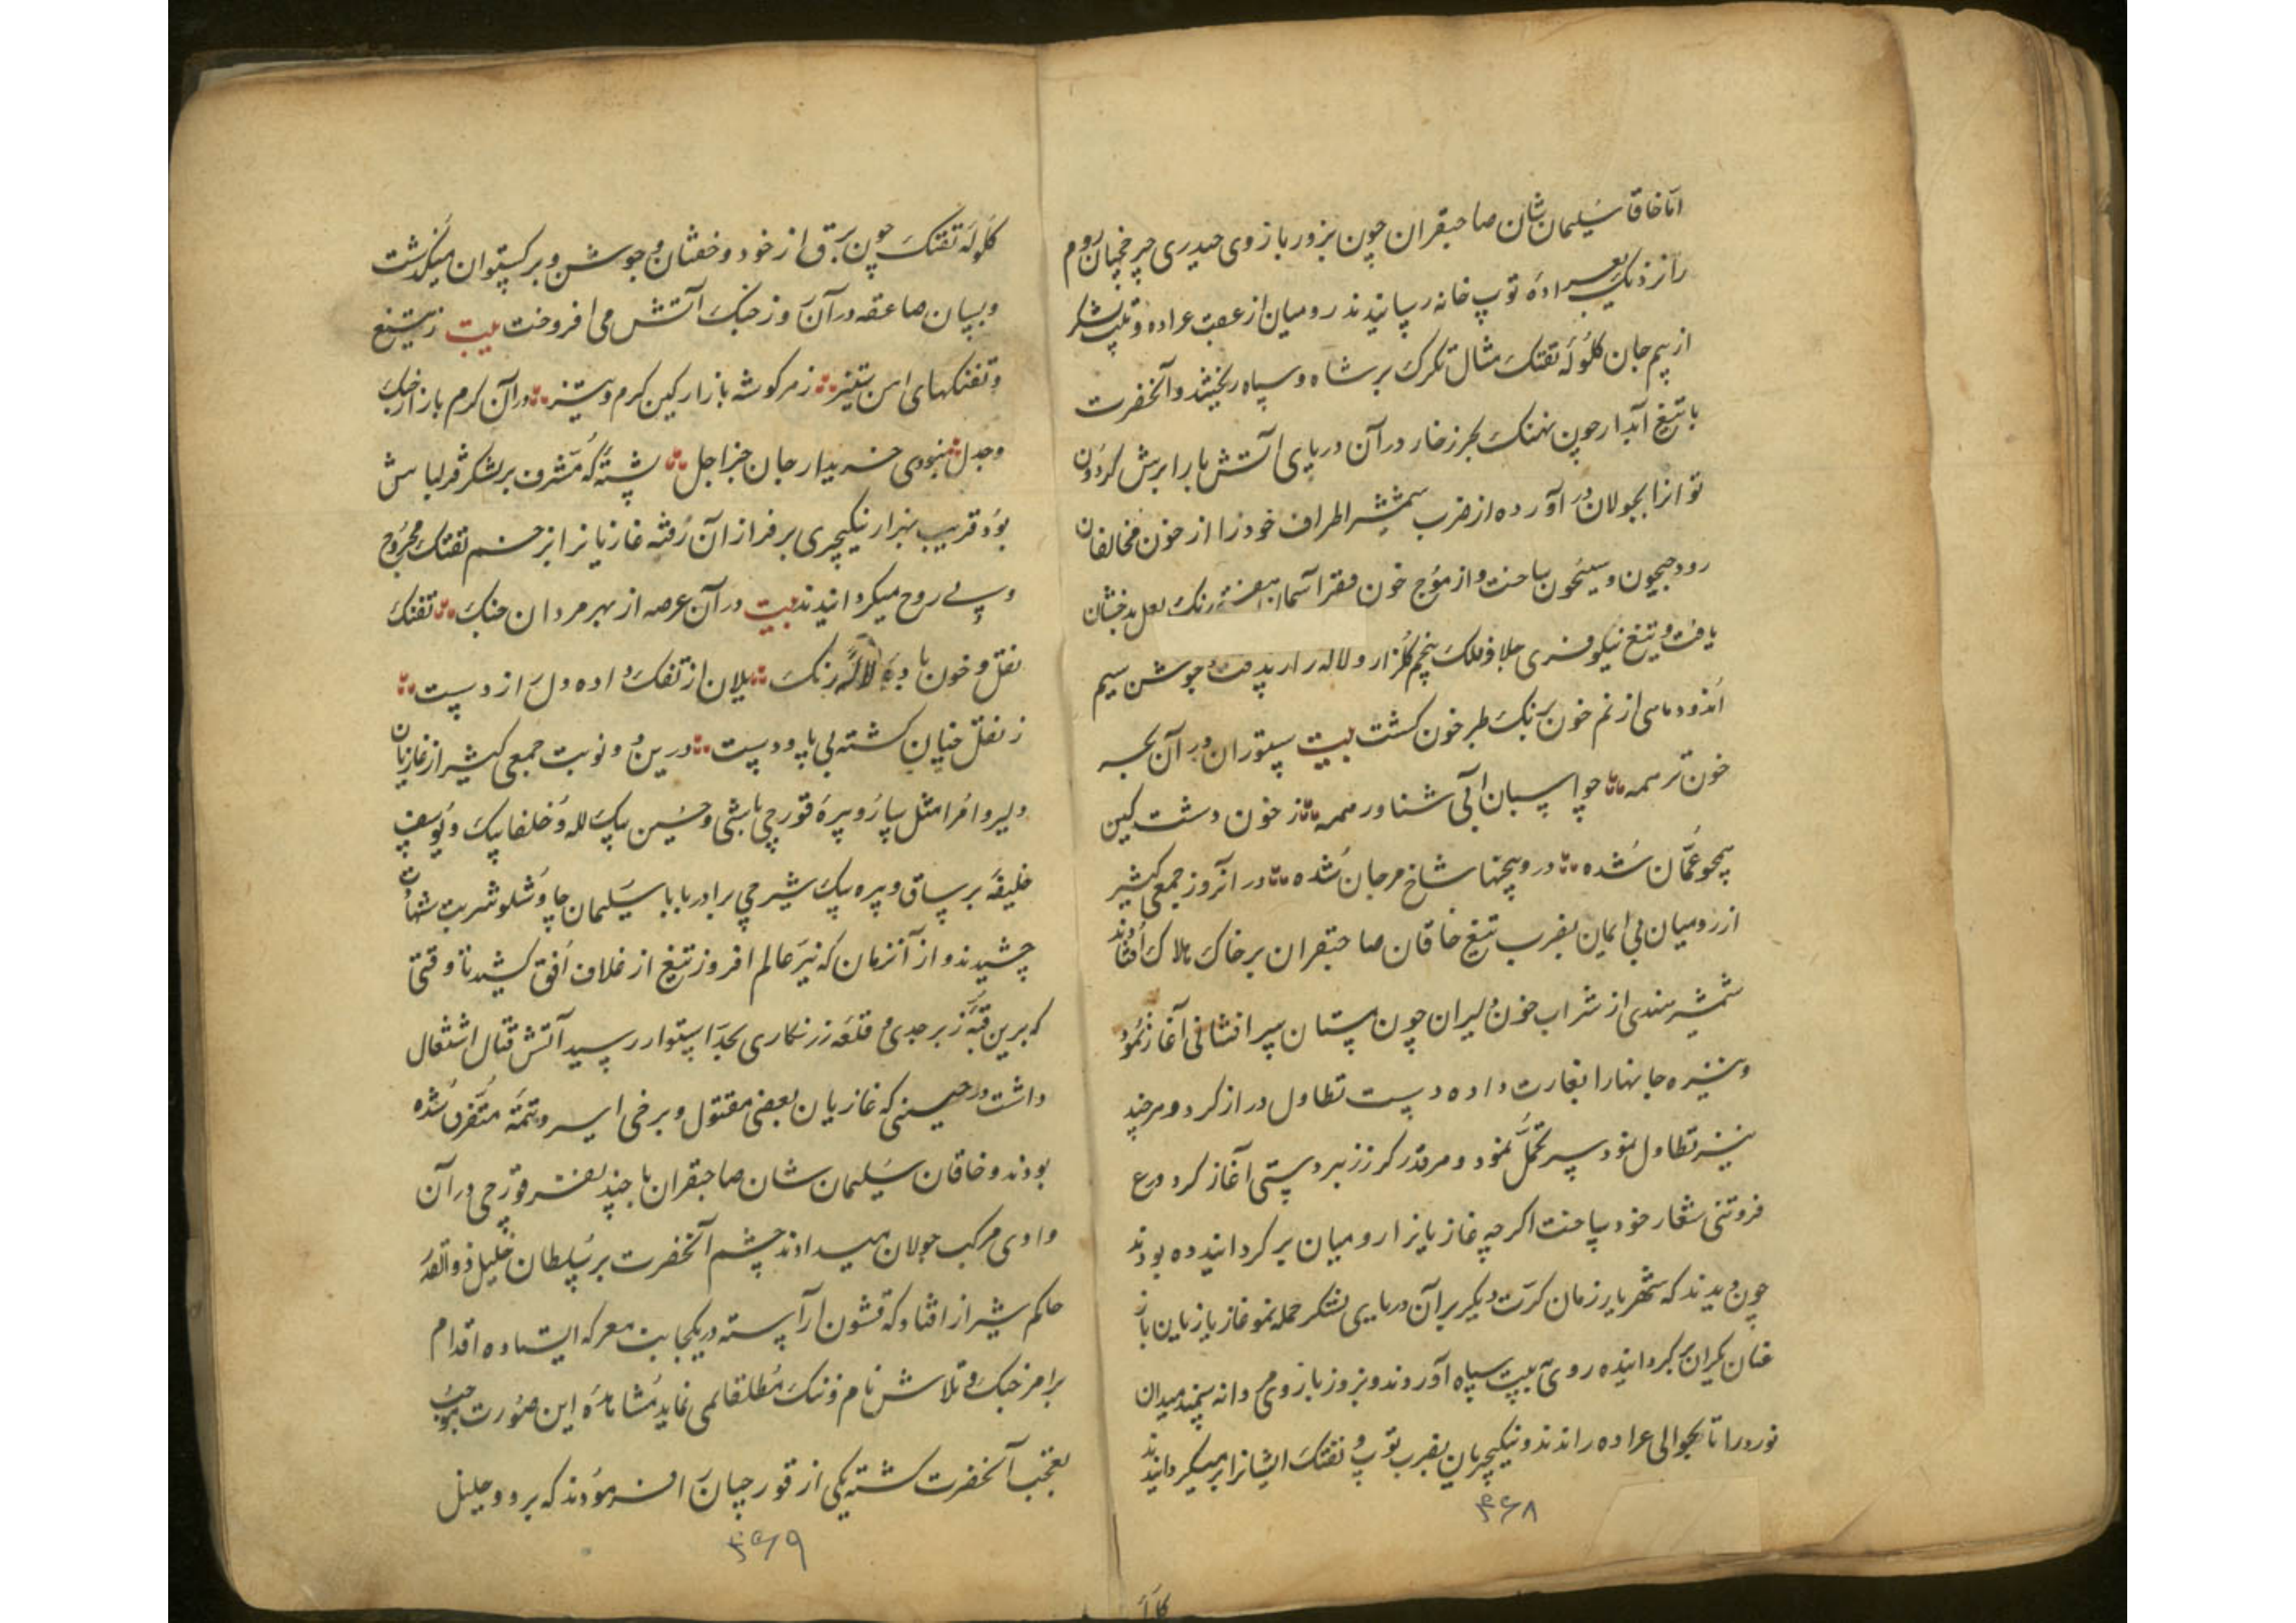 اما خاقان سلیمان شان صاحبقران چون بزور بازوی حیدری چرخچیان روم
را نزدیک بعراده توپ خانه رسانیدند رومیان از عقب عراده و قلب لشکر
از بیم جان کلوله تفنک مثال تکرک بر شاه و سپاه ریختند و آنحضرت
با تیغ آبدار چون نهنک بحر زخار در آن دریای آتش بار ابرش کردون
توانرا بجولان در آورده از ضرب شمشیر اطراف خود را از خون مخالفان
رود جیحون و سیحون ساخت و از موج خون آسمان بنفشه رنک لعل بدخشان
یافت و تیغ نیلوفری جلاد فلک پنجم کلزار و لاله زار پذیرفت و جوشن سیم
اندود ماهی از نم خون برنک طبرخون کشت بیت ستوران در آن بحر
خون تر همه چو اسبان آبی شناور همه ز خون دشت کین
همچو عمان شده درو پنجها شاخ مرجان شده در آنروز جمعی کثیر
از رومیان بی ایمان بضرب تیغ خاقان صاحبقران بر خاک هلاک افتادند
شمشیر هندی از شراب خون دلیران چون مستان سر افشانی آغاز نمود
و نیزه جانها را بغارت داده دست تطاول دراز کرد و هرچند
نیزه تطاول نمود سپر تحمل نمود و هر قدر کرز زبردستی آغاز کرد درع
فروتنی شعار خود ساخت اکرچه غازیانرا رومیان بر کردانیده بودند
چون دیدند که شهریار زمان کرت دیکر بر آن دریای لشکر حمله نمود غازیان باز
عنان یکران بر کردانیده روی بسپاه آوردند و بزور بازوی مردانه میدان
نورد را تا بحوالی عراده راندند و نیکیچریان بضرب توپ و تفنک ایشانرا بر میکردانیدند
۳۶۸
کلوله تفنک چون برق از خود و خفتان و جوشن و برکستوان میکذشت
و بسان صاعقه در آن روز جنک آتش می افروخت بیت ز تیغ
و تفنکهای اهن ستیز ز هر کوشه بازار کین کرم و تیز در آن کرم بازار جنک
و جدل نبودی خریدار جان جز اجل پشته که مشرف بر لشکر قزلباش
بود قریب بهزار نیکیچری بر فراز آن رفته غازیانرا بزخم تفنک مجروح
و بی روح میکردانیدند بیت در آن عرصه از بهر مردان جنک تفنک
نقل و خون بادهٔ لاله رنک یلان از تفنک داده دل از دست
ز نقل چنان کشته بی پا و دست درین دو نوبت جمعی کثیر از غازیان
دلیر و امرا مثل سارو پیره قورچی باشی و حسین بیک لله و خلفا بیک و یوسف
خلیفه برساق و پیره بیک شیرچی برادر بابا سلیمان چاوشلو شربت شهادت
چشیدند و از آنزمان که نیر عالم افروز تیغ از غلاف افق کشید تا وقتی
که برین قبه زبرجدی و قلعه زرنکاری بحد استوا رسید آتش قتال اشتعال
داشت در حینی که غازیان بعضی مقتول و برخی اسیر و تتمه متفرق شده
بودند و خاقان سلیمان شان صاحبقران با چند نفر قورچی در آن
وادی مرکب جولان میدادند چشم آنحضرت بر سلطان خلیل ذوالقدر
حاکم شیراز افتاد که قشون آراسته در یکجانب معرکه ایستاده اقدام
بر امر جنک و تلاش نام و ننک مطلقا نمی نماید مشاهده این صورت موجب
تعجب آنحضرت کشته یکی از قورچیانرا فرمودند که برو و خلیل
۳۶۹